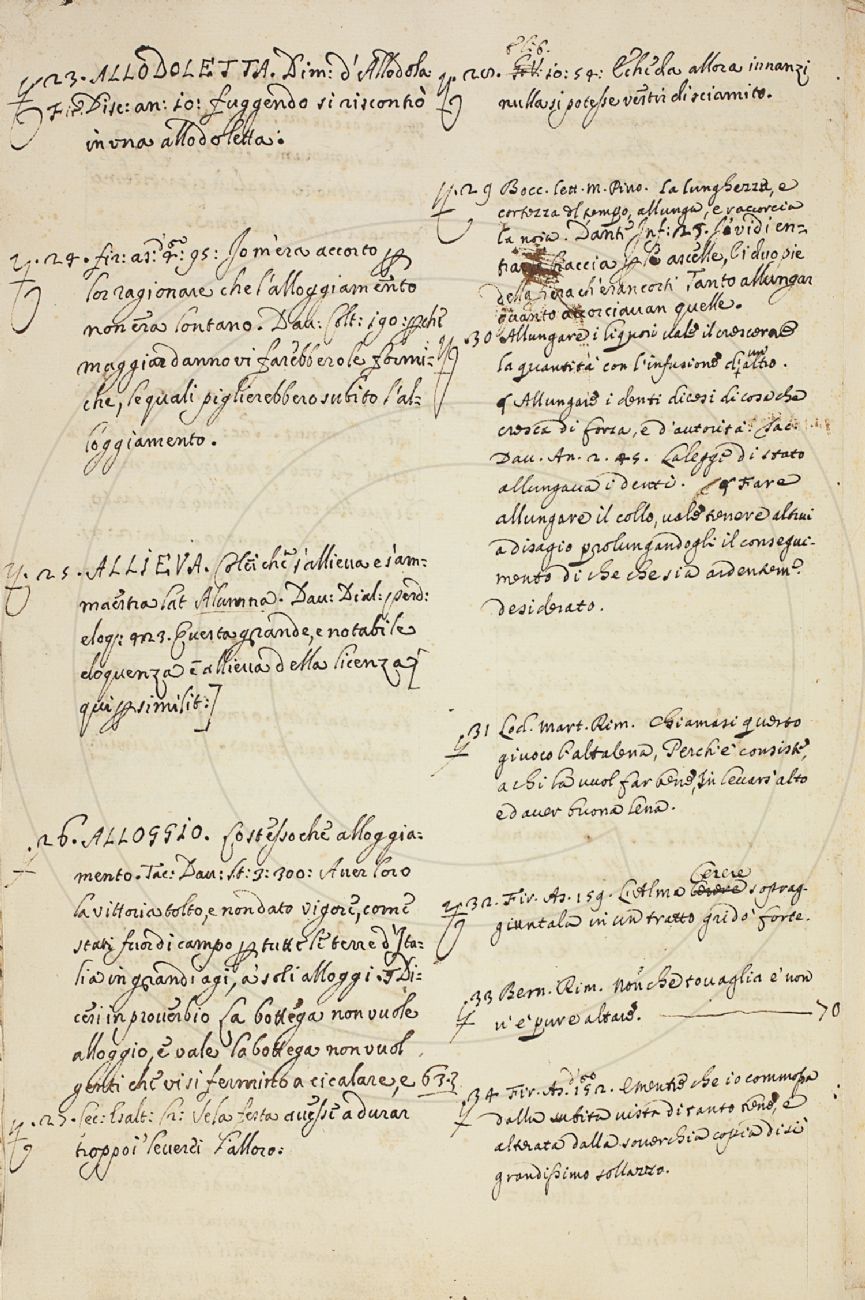 23. ALLODOLETTA. Dim: d'Allodola
Fir. Disc: an: 10: fuggendo si riscontrò
in una allodoletta:
24. fir: as: 4: 95: Io m'era accorto p
lor ragionare che l'alloggiamento
non era lontano. Dau: Colt: 190: pche
maggior danno vi farebbero le formi-
che, le quali piglierebbero subito l'al-
loggiamento.
25. ALLIEVA. Colei che s'allieva e s'am-
maestra lat Alumna. Dau: Dial: perd:
eloq: 423. Questa grande, e notabile
eloquenza è allieva della licenza [
qui p similit:]
26. ALLOGGIO. Lo stesso che alloggia-
mento. Tac: Dau: St: 3: 300: Aver loro
la vittoria tolto, e non dato vigore, come
stati fuor di campo p tutte le terre d'Ita-
lia in grandi agi, à soli alloggi. ¶ Di-
cesi in proverbio La bottega non vuole
alloggio, e vale la bottega non vuol
genti che vi si fermino a cicalare, e 633
27. Cec: Esalt: Cr: Se la festa avesse a durar
troppo i' leverei l'alloro:
8 lib.
28. 10: 54: Che da allora innanzi
nulla si potesse vestir di sciamito.
29 Bocc. lett. M. Pino. La lunghezza, e
cortezza del tempo, allunga, e raccorcia
la noia. Dant. Inf: 25. Io vidi en-
trar braccia p le ascelle, li duo pie
della fiera ch'eran corti Tanto allungar
quanto accorciavan quelle.
30 Allungare i liquori vale il crescerne
la quantità con l'infusione di un altro.
¶ Allungare i denti dicesi di cosa che
cresca di forza, e d'autorità: Tac:
Dau. An. 2. 45. La legge di stato
allungava i denti. ¶ Fare
allungare il collo, vale tenere altrui
a disagio prolungandogli il consegui-
mento di che che sia ardentem.e
desiderato.
31 Lod. Mart. Rim. Chiamasi questo
giuoco l'altalena, Perch'e' consiste,
a chi la vuol far bene, In levars'alto
ed aver buona lena.
32. Fir. As. 159. L'Alma Cerere soprag-
giuntala in un tratto gridò forte.
33 Bern. Rim. Non che tovaglia e' non
v'è pure altare. 70
34 Fir. As. 152. Ementre che io commossa
dalla subita vista di tanto bene, e
alterata dalla soverchia copia di sì
grandissimo sollazzo.